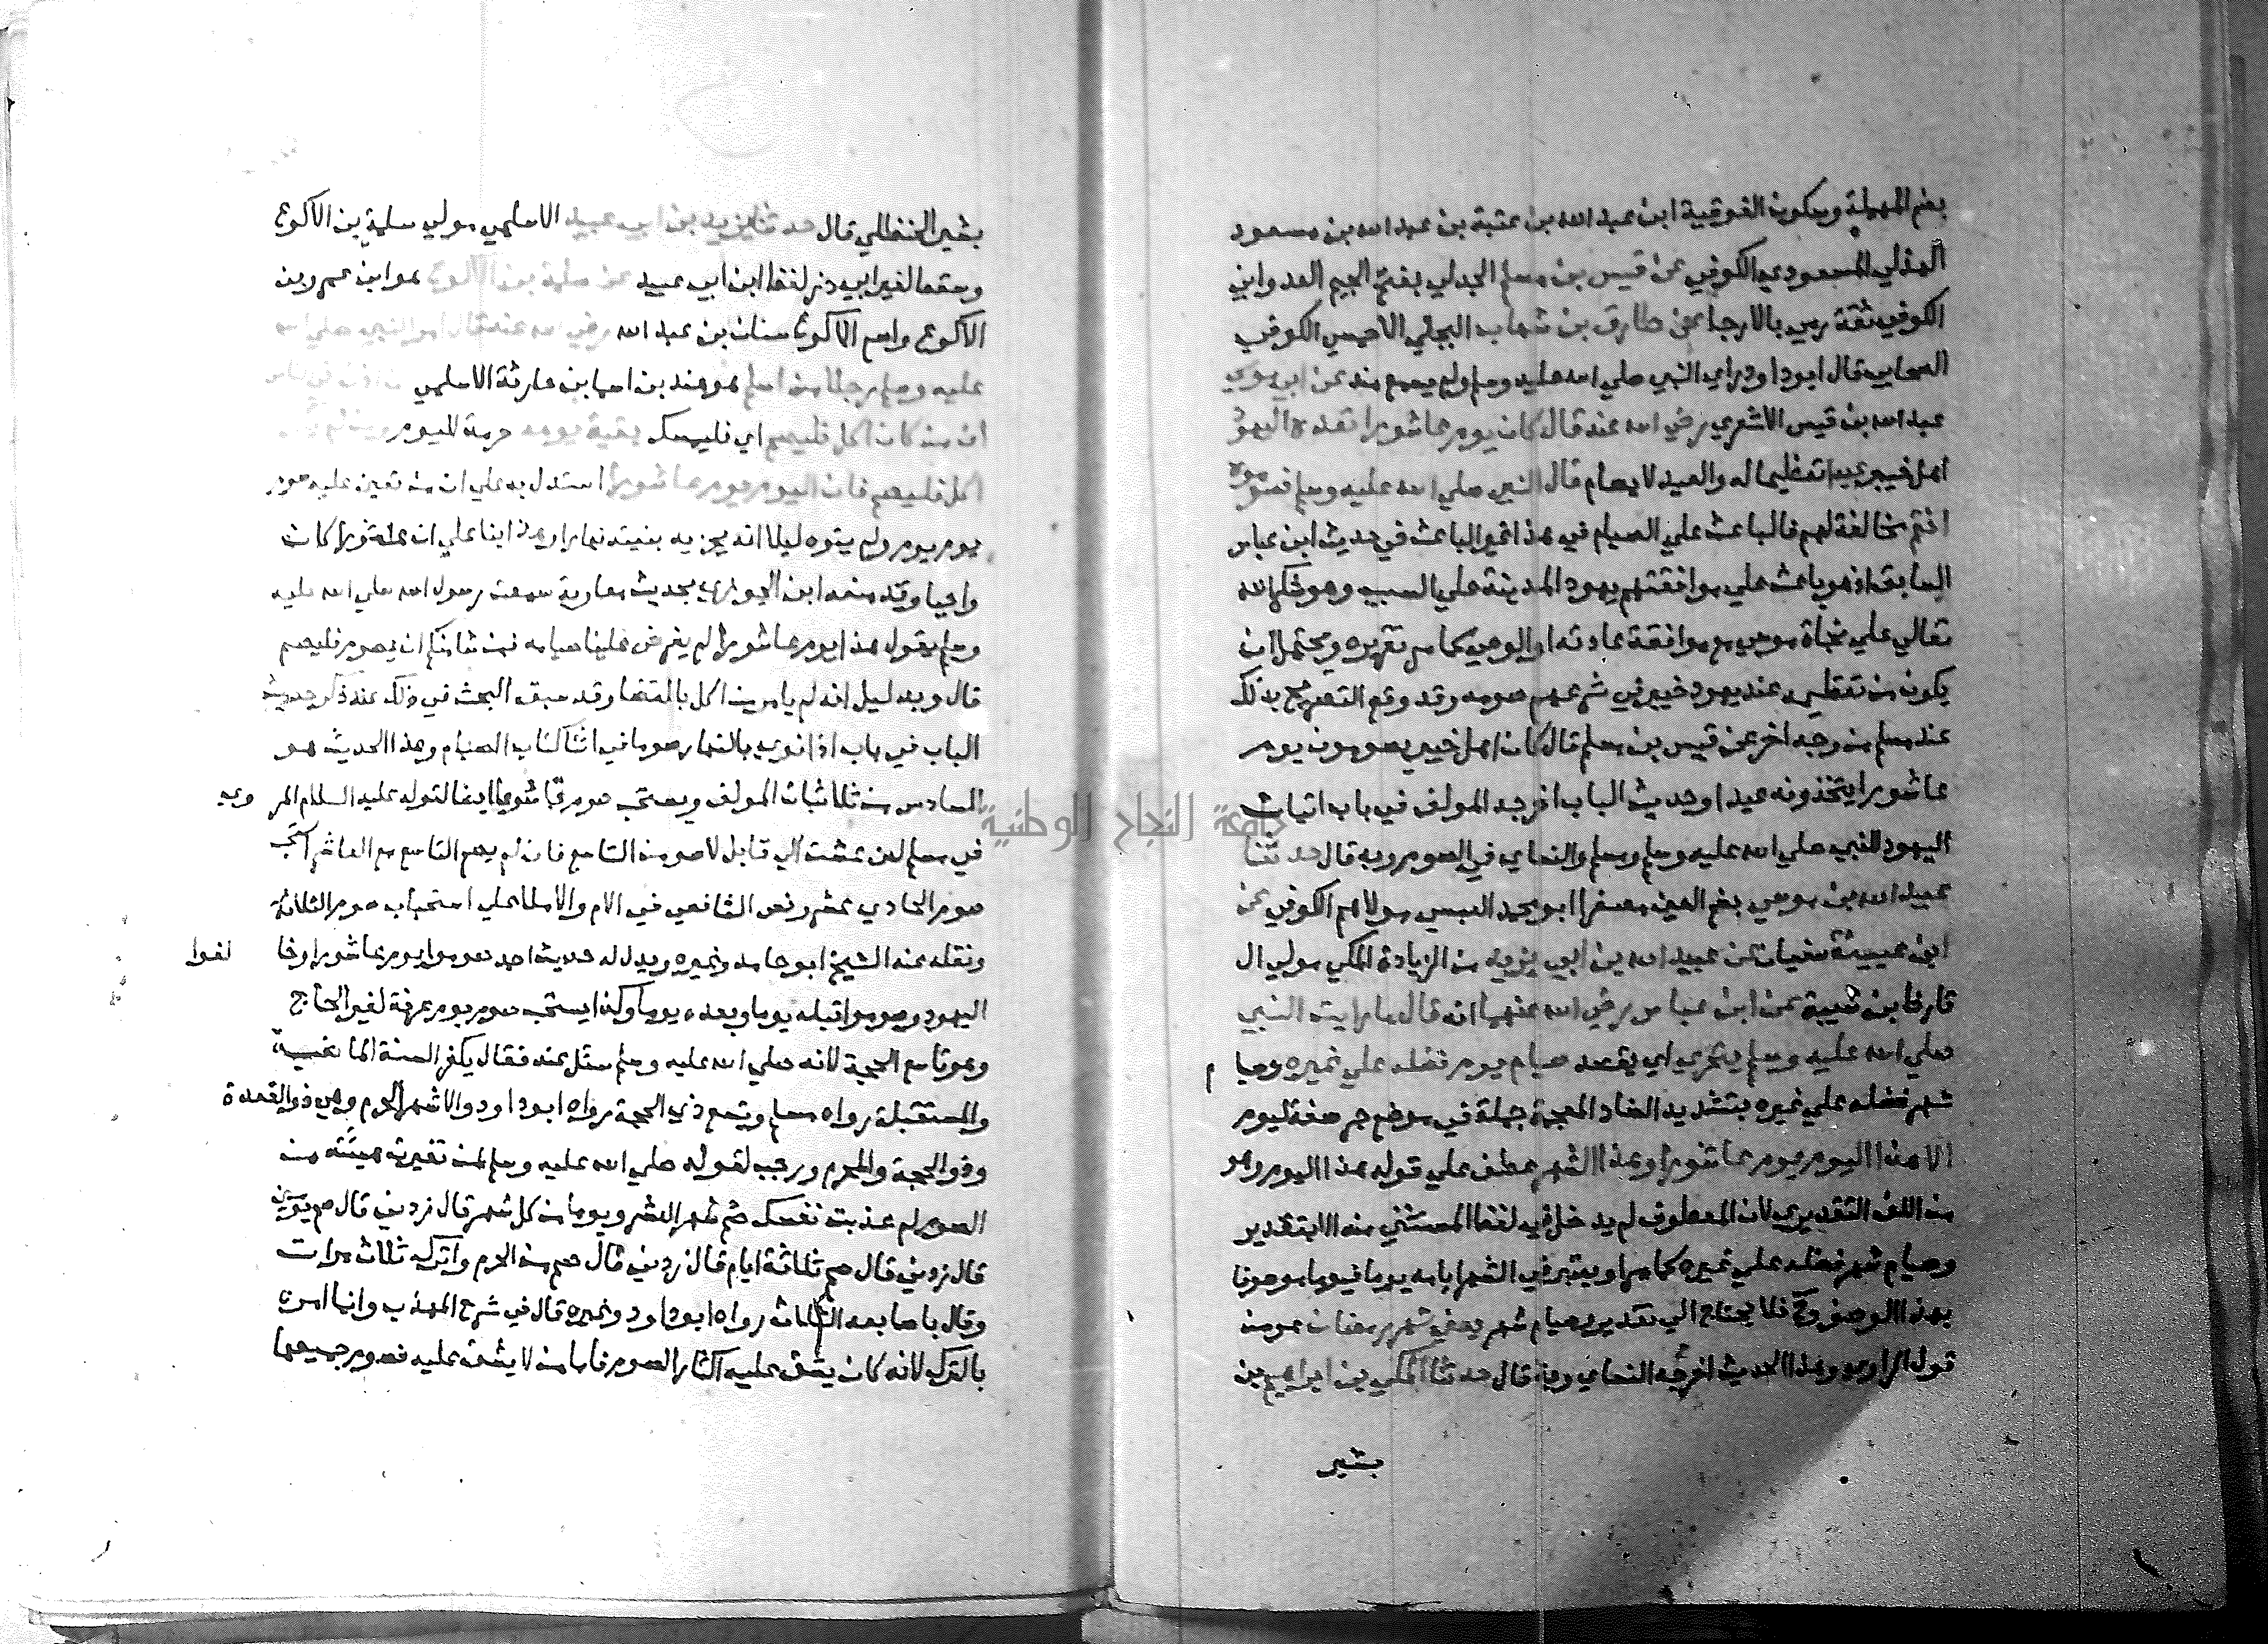 بضم المهملة وسكون الفوقية ابن عبد الله بن عتبة بن عبد الله بن مسعود
الهذلي المسعودي الكوفي عن قيس بن مسلم الجدلي بفتح الجيم العدواني
الكوفي ثقة رمي بالارجا عن طارق بن شهاب البجلي الاحمسي الكوفي
الصحابي قال ابو داود راي النبي صلي الله عليه وسلم ولم يسمع منه عن ابي موسي
عبد الله بن قيس الاشعري رضي الله عنه قال كان يوم عاشورا تعده اليهود
اهل خيبر عيدا تعظيما له والعيد لا يصام قال النبي صلي الله عليه وسلم فصوموه
انتم مخالفة لهم فالباعث علي الصيام في هذا غير الباعث في حديث ابن عباس
السابق اذ هو باعث علي موافقتهم يهود المدينة علي السبب وهو شكر الله
تعالي علي نجاة موسي مع موافقة عادته او الوحي كما مر تقريره ويحتمل ان
يكون من تعظيمه عند يهود خيبر في شرعهم صومه وقد وقع التصريح بذلك
عند مسلم من وجه اخر عن قيس بن مسلم قال كان اهل خيبر يصومون يوم
عاشورا يتخذونه عيدا وحديث الباب اخرجه المولف في باب اتيان
اليهود النبي صلي الله عليه وسلم ومسلم والنساي في الصوم وبه قال حدثنا
عبيد الله بن موسي بضم العين مصغرا ابو محمد العبسي مولاهم الكوفي عن
ابن عيينة سفيان عن عبيد الله بن ابي يزيد من الزيادة المكي مولي ال
قارظ بن شيبة عن ابن عباس رضي الله عنهما انه قال ما رايت النبي
صلي الله عليه وسلم يتحري اي يقصد صيام يوم فضله علي غيره وصيام
شهر فضله علي غيره بتشديد الضاد المعجمة جملة في موضع جر صفة ليوم
الا هذا اليوم يوم عاشورا وهذا الشهر عطف علي قوله هذا اليوم وهو
من اللف التقديري لان المعطوف لم يدخل فيه لفظ المستثني منه الا بتقدير
وصيام شهر فضله علي غيره كما مر او يعتبر في الشهر ايامه يوما فيوما موصوفا
بهذا الوصف وح فلا يحتاج الي تقدير وصيام شهر يعني شهر رمضان هو من
قول الراوي وهذا الحديث اخرجه النساي وبه قال حدثنا المكي بن ابراهيم بن
بشير
بشير الحنظلي قال حدثنا يزيد بن ابي عبيد الاسلمي مولي سلمة بن الاكوع
وسقط لغير ابي ذر لفظ ابن ابي عبيد عن سلمة بن الاكوع هو ابن عمرو بن
الاكوع واسم الاكوع سنان بن عبد الله رضي الله عنه قال امر النبي صلي الله
عليه وسلم رجلا من اسلم هو هند بن اسما بن حارثة الاسلمي ان اذن في الناس
ان من كان اكل فليصم اي فليمسك بقية يومه حرمة لليوم ومن لم يكن
اكل فليصم فان اليوم يوم عاشورا استدل به علي ان من تعين عليه صوم
يوم يوم ولم ينوه ليلا انه يجزيه بنيته نهارا وهذا بنا علي ان عاشورا كان
واجبا وقد منعه ابن الجوزي بحديث معاوية سمعت رسول الله صلي الله عليه
وسلم يقول هذا يوم عاشورا لم يفرض علينا صيامه فمن شا منكم ان يصوم فليصم
قال وبدليل انه لم يامر من اكل بالقضا وقد سبق البحث في ذلك عند ذكر حديث
الباب في باب اذا نوي بالنهار صوما في اثنا كتاب الصيام وهذا الحديث هو
السادس من ثلاثيات المولف ويستحب صوم تاسوعا ايضا لقوله عليه السلام المروي
في مسلم لئن عشت الي قابل لاصومن التاسع فان لم يصم التاسع مع العاشر استحب
صوم الحادي عشر ونص الشافعي في الام والاملا علي استحباب صوم الثلاثة
ونقله عنه الشيخ ابو حامد وغيره ويدل له حديث احمد صوموا يوم عاشورا وخالفوا
اليهود وصوموا قبله يوما وبعده يوما وكذا يستحب صوم يوم عرفة لغير الحاج
وهو تاسع الحجة لانه صلي الله عليه وسلم سئل عنه فقال يكفر السنة الماضية
والمستقبلة رواه مسلم وتسع ذي الحجة رواه ابو داود والاشهر الحرم وهي ذو القعدة
وذو الحجة والمحرم ورجب لقوله صلي الله عليه وسلم لمن تغيرت هيئته من
الصوم لم عذبت نفسك صم شهر الصبر ويوما من كل شهر قال زدني قال صم يومين
قال زدني قال صم ثلاثة ايام قال زدني قال صم من الحرم واترك ثلاث مرات
وقال باصابعه الثلاث رواه ابو داود وغيره قال في شرح المهذب وانما امره
بالترك لانه كان يشق عليه اكثار الصوم فاما من لا يشق عليه فصوم جميعها